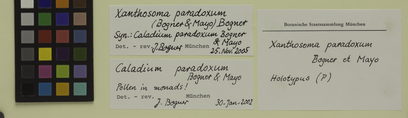 Xanthosoma paradoxum
(Bogner & Mayo) Bogner
Syn.: Caladium paradoxum Bogner
& Mayo
Det. - rev. J. Bogner München
25. Nov. 2005
Caladium paradoxum
Bogner & Mayo
Pollen in monads!
Det. - rev. München
J. Bogner 30. Jan. 2002
Botanische Staatssammlung München
Xanthosoma paradoxum
Bogner et Mayo
Holotypus (P)